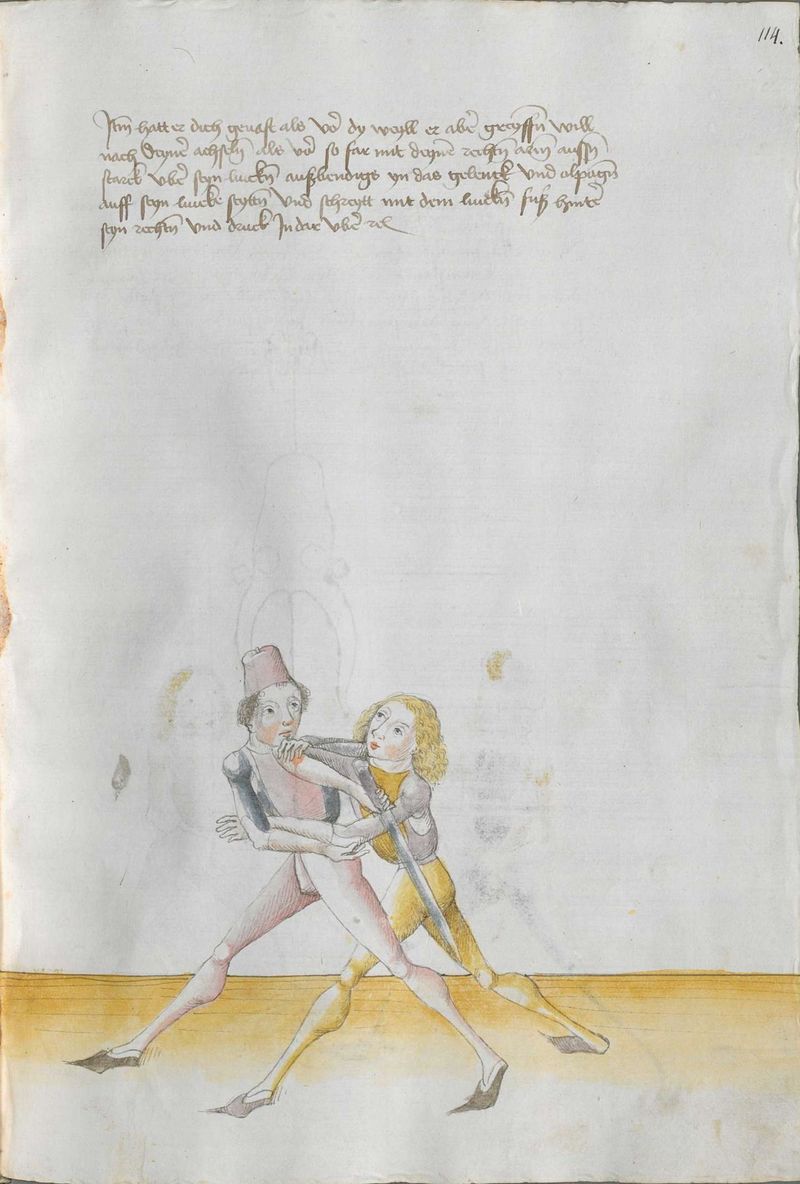 114.
Itm hatt er dich gevast als vor dy weyll er aber greyffn will
nach deyner achseln als vor so far mit deyne rechtn arm aussn
starck uber seyn lincken auswendigs yn das gelenck und
auff seyn lincke seytn und schreytt mit dem linckn fuß hinter
seyn rechtn und druck In dar uber rel